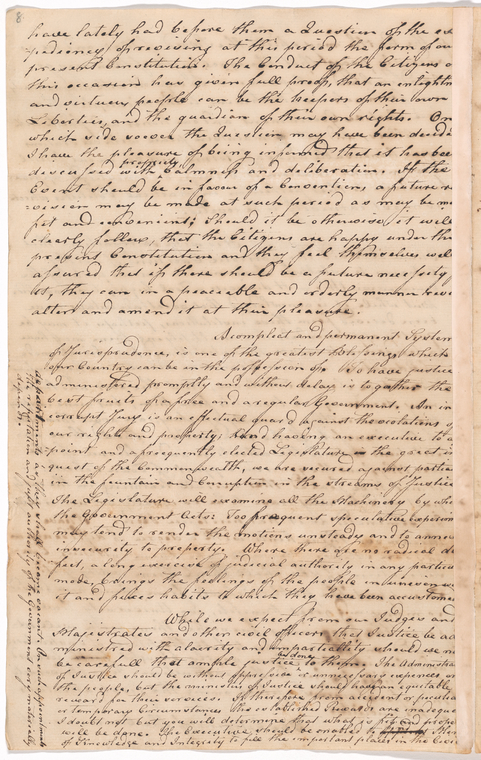 8
have lately had before them a Question of the ex
pediency of revising at this period the form of our
present Constitution. The Conduct of the Citizens o
this occasion has given full proof, that an enlightn
and virtuous people can be the keepers of their own
Liberties, and the guardian of their own rights. On
which side soever the Question may have been decid
I have the pleasure of being informed that it has bee
discussed with propriety, calmness and deliberation. If the
Event should be in favour of a Convention, a future re
vision may be made at such period as may be mo
fit and convenient; should it be otherwise it will
clearly follow, that the Citizens are happy under the
present Constitution and they feel themselves well
assured that if there should be a future necessity
it, they can in a peaceable and orderly manner revi
alter and amend it at their pleasure.
A compleat and permanent System
of Jurisprudence, is one of the greatest blessings which
our Country can be in the possession of. To have justice
administered promptly and without delay is to gather the
best fruits of a free and a regular Government. An in
corrupt Jury is an effectual guard against the violations of
our rights and property; and having an executive to a
point and a frequently elected Legislature the great in
quest of the Commonwealth, we are secured against partia
in the fountain and Corruption in the streams of Justice
The Legislature will examine all the Machinery by whi
the Government Acts: Too frequent speculative experim
may tend to render the motions unsteady and to annou
insecurity to property. Where there are no radical de
fect, a long exercise of judicial authority in any particu
mode, brings the feelings of the people in unison wi
it and fixes habits to which they have been accustome
While we expect from our Judges and
Magistrates and other civil officers that Justice be ad
ministred with alacrity and impartiality should we no
be carefull that ample justice be done to them. The Administrat
of Justice should be without oppressive or unnecessary expences on
the people, but the ministers of Justice should have an equitable
reward for their services. If therefore from accident or particular
or temporary Circumstances the established Rewards are inadequa
I doubt not but you will determine that what is fit and proper
will be done. The Executive should be enabled to Men
of Knowledge and Integrity to fill the important places in the Gover
departments as they shall become vacant. On such appointments
the reputation and safety authority of the Government very materially
depends.